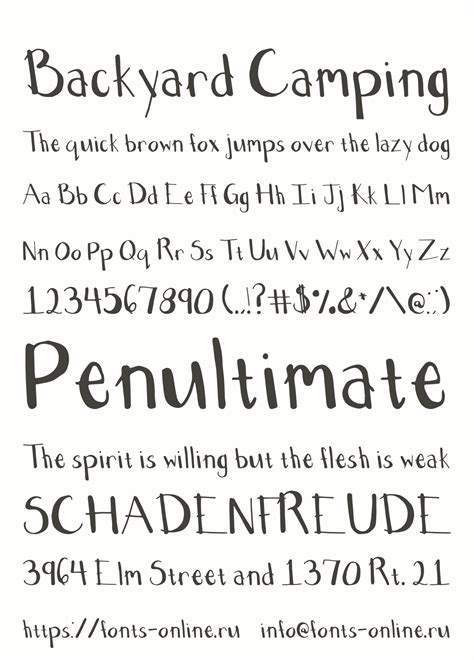 Backyard Camping
The quick brown fox jumps over the lazy dog
Aa Bb Cc Dd Ee Ff Gg Hh Ii Jj Kk Ll Mm
Nn Oo Pp Qq Rr Ss Tt Uu Vv Ww Xx Yy Zz
1234567890 (.,!?#$%&*/\@:;)
Penultimate
The spirit is willing but the flesh is weak
SCHADENFREUDE
3964 Elm Street and 1370 Rt. 21
https://fonts-online.ru info@fonts-online.ru